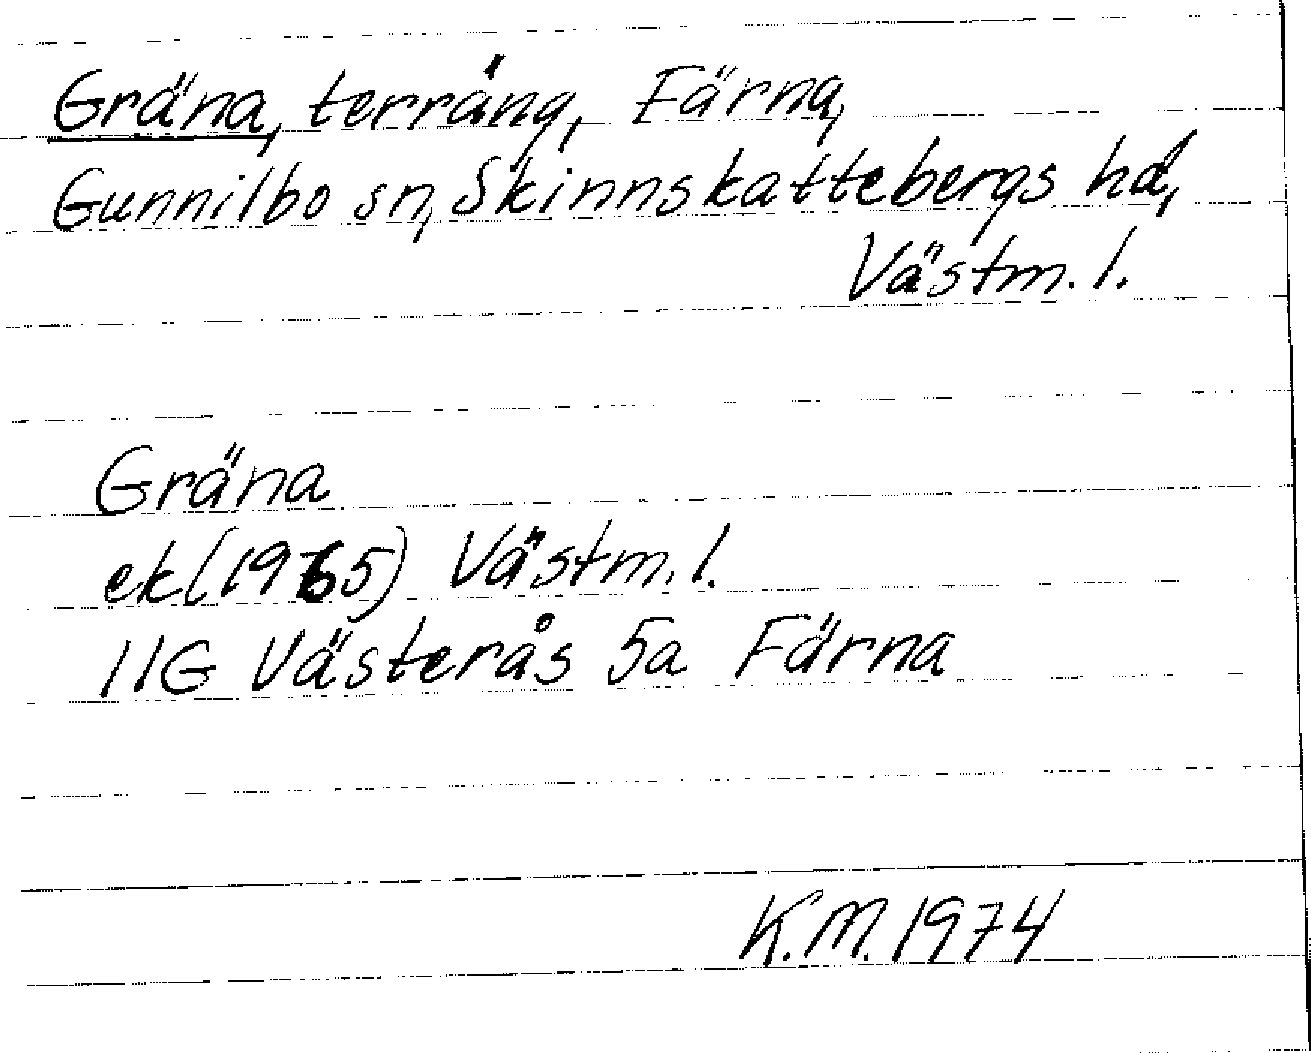 Gräna, terräng, Färna,
Gunnilbo sn, Skinnskattebergs hd,
Västm. l.
Gräna
ek (1965) Västm. l.
11G Västerås 5a Färna
K.M. 1974